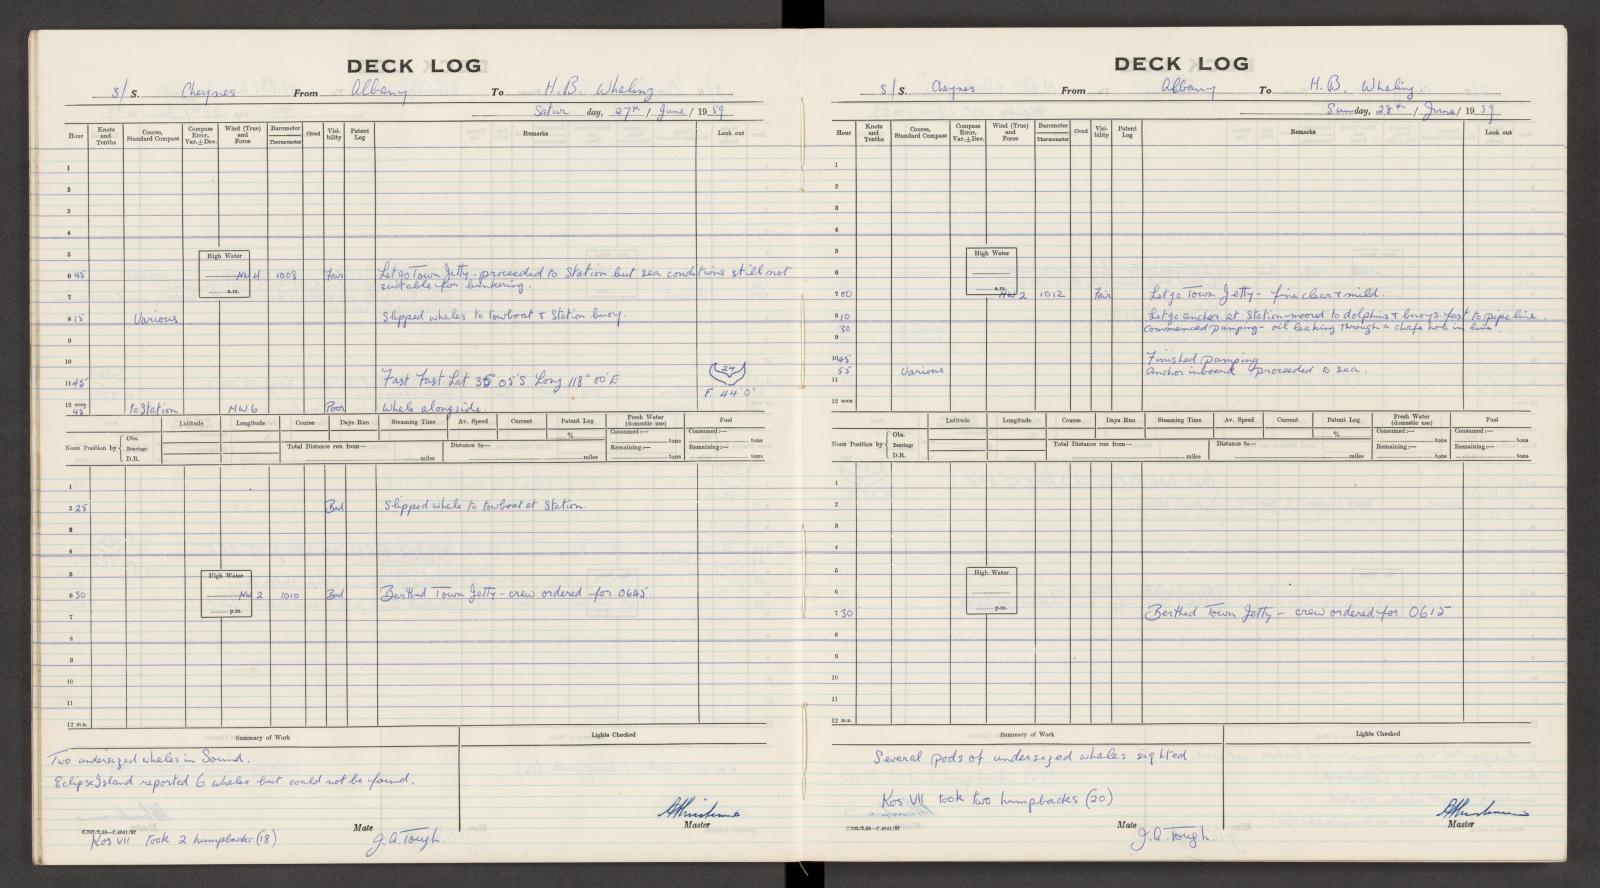 DECK LOG
S/ S. Cheynes From Albany To H. B. Whaling
Satur day, 27th / June / 19 59
Hour Knots and Tenths Course, Standard Compass Compass Error, Var. ± Dev. Wind (True) and Force Barometer Thermometer Cloud Visibility Patent Log Remarks Look out
1
2
3
4
5
High Water
6 45 NW 4 1008 Fair Let go Town Jetty - proceeded to Station but sea conditions still not
suitable for bunkering.
a.m.
7
8 15 Various Slipped whales to towboat & Station buoy.
9
10
24
11 45 Fast Fast Lat 35 05'S Long 118° 00'E
F. 44' 0"
12 noon
45 to Station NW 6 Poor Whale alongside.
Latitude Longitude Course Days Run Steaming Time Av. Speed Current Patent Log Fresh Water (domestic use) Fuel
Noon Position by Obs. Bearings D.R. Total Distance run from— miles Distance to— miles % Consumed:— tons Remaining:— tons Consumed:— tons Remaining:— tons
1
2 25 Bad Slipped whale to towboat at Station.
3
4
5
High Water
6 30 NW 2 1010 Bad Berthed Town Jetty - crew ordered for 0645.
p.m.
7
8
9
10
11
12 m.n.
Summary of Work Lights Checked
Two undersized whales in Sound.
Eclipse Island reported 6 whales but could not be found.
Mate Master
Kos VII took 2 humpbacks (18) J. A. Tough.
DECK LOG
S/ S. Cheynes From Albany To H. B. Whaling.
Sun day, 28th / June / 19 59
Hour Knots and Tenths Course, Standard Compass Compass Error, Var. ± Dev. Wind (True) and Force Barometer Thermometer Cloud Visibility Patent Log Remarks Look out
1
2
3
4
5
High Water
6
a.m.
7 00 NW 2 1012 Fair Let go Town Jetty - fine clear & mild.
8 10 Let go anchor at Station - moored to dolphins & buoys fast to pipe line.
30 Commenced pumping - oil leaking through a chafe hole in line.
9
10 45 Finished pumping
55 Various Anchor inboard & proceeded to sea.
11
12 noon
Latitude Longitude Course Days Run Steaming Time Av. Speed Current Patent Log Fresh Water (domestic use) Fuel
Noon Position by Obs. Bearings D.R. Total Distance run from— miles Distance to— miles % Consumed:— tons Remaining:— tons Consumed:— tons Remaining:— tons
1
2
3
4
5
High Water
6
p.m.
7 30 Berthed Town Jetty - crew ordered for 0615
8
9
10
11
12 m.n.
Summary of Work Lights Checked
Several pods of undersized whales sighted
Kos VII took two humpbacks (20)
Mate Master
J. A. Tough.